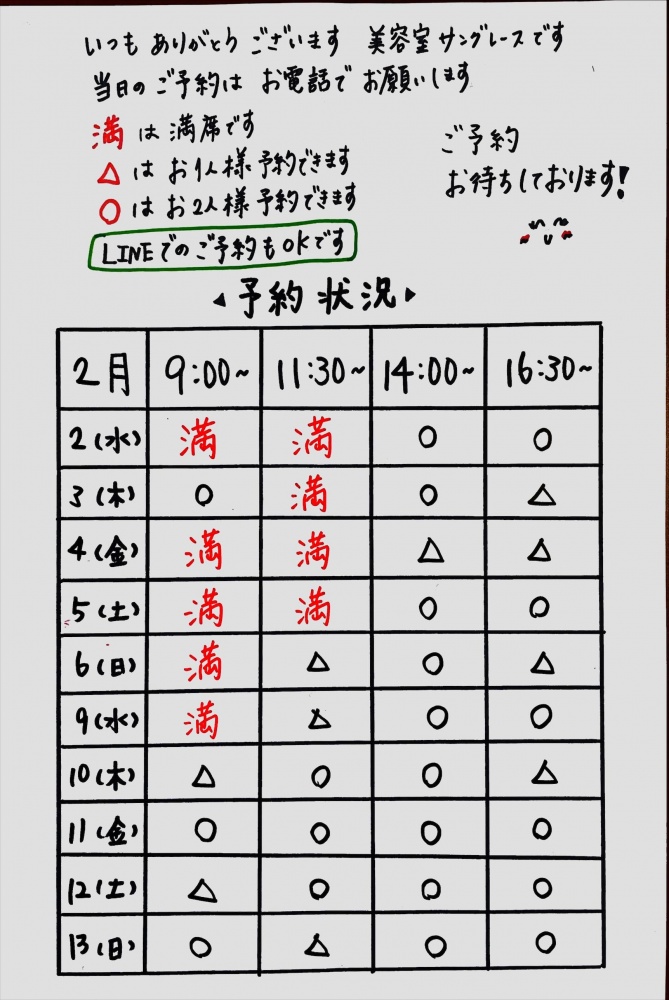 いつも ありがとうございます 美容室サングレースです
当日のご予約は お電話で お願いします
満は満席です
△はお1人様予約できます
○はお2人様予約できます
ご予約
お待ちしております!
LINEでのご予約もOKです
◀予約状況▶
2月 9:00~ 11:30~ 14:00~ 16:30~
2(水) 満 満 ○ ○
3(木) ○ 満 ○ △
4(金) 満 満 △ △
5(土) 満 満 ○ ○
6(日) 満 △ ○ △
9(水) 満 △ ○ ○
10(木) △ ○ ○ △
11(金) ○ ○ ○ ○
12(土) △ ○ ○ ○
13(日) ○ △ ○ ○